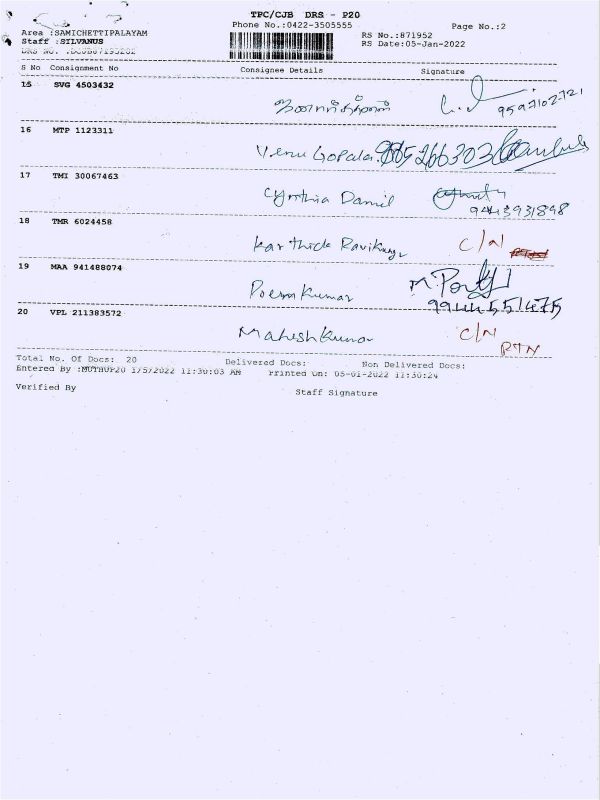 TPC/CJB DRS - P20
Phone No.:0422-3505555 Page No.:2
Area :SAMICHETTIPALAYAM RS No.:871952
Staff :SILVANUS RS Date:05-Jan-2022
S No Consignment No Consignee Details Signature
15 SVG 4503432
16 MTP 1123311
Venu Gopala
17 TMI 30067463
Cynthia Daniil
9443931898
18 TMR 6024458
Karthick C/N
19 MAA 941488074
Kumar
9944551475
20 VPL 211383572
Mahesh Kumar C/N
RTN
Total No. Of Docs: 20 Delivered Docs: Non Delivered Docs:
Entered By :MUTHUP20 1/5/2022 11:30:03 AM Printed On: 05-01-2022 11:30:24
Verified By Staff Signature